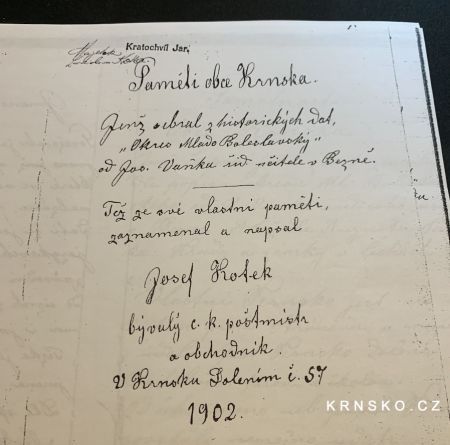 Kratochvíl Jar.
Paměti obce Krnska.
Jenž sebral z historických dat,
„Okres Mlado Boleslavský"
od Jos. Vaňka říd. učitele v Bezně.
Též ze své vlastní paměti,
zaznamenal a napsal
Josef Kotek
bývalý c. k. poštmistr
a obchodník.
V Krnsku Dolením č. 57
1902.
KRNSKO.CZ